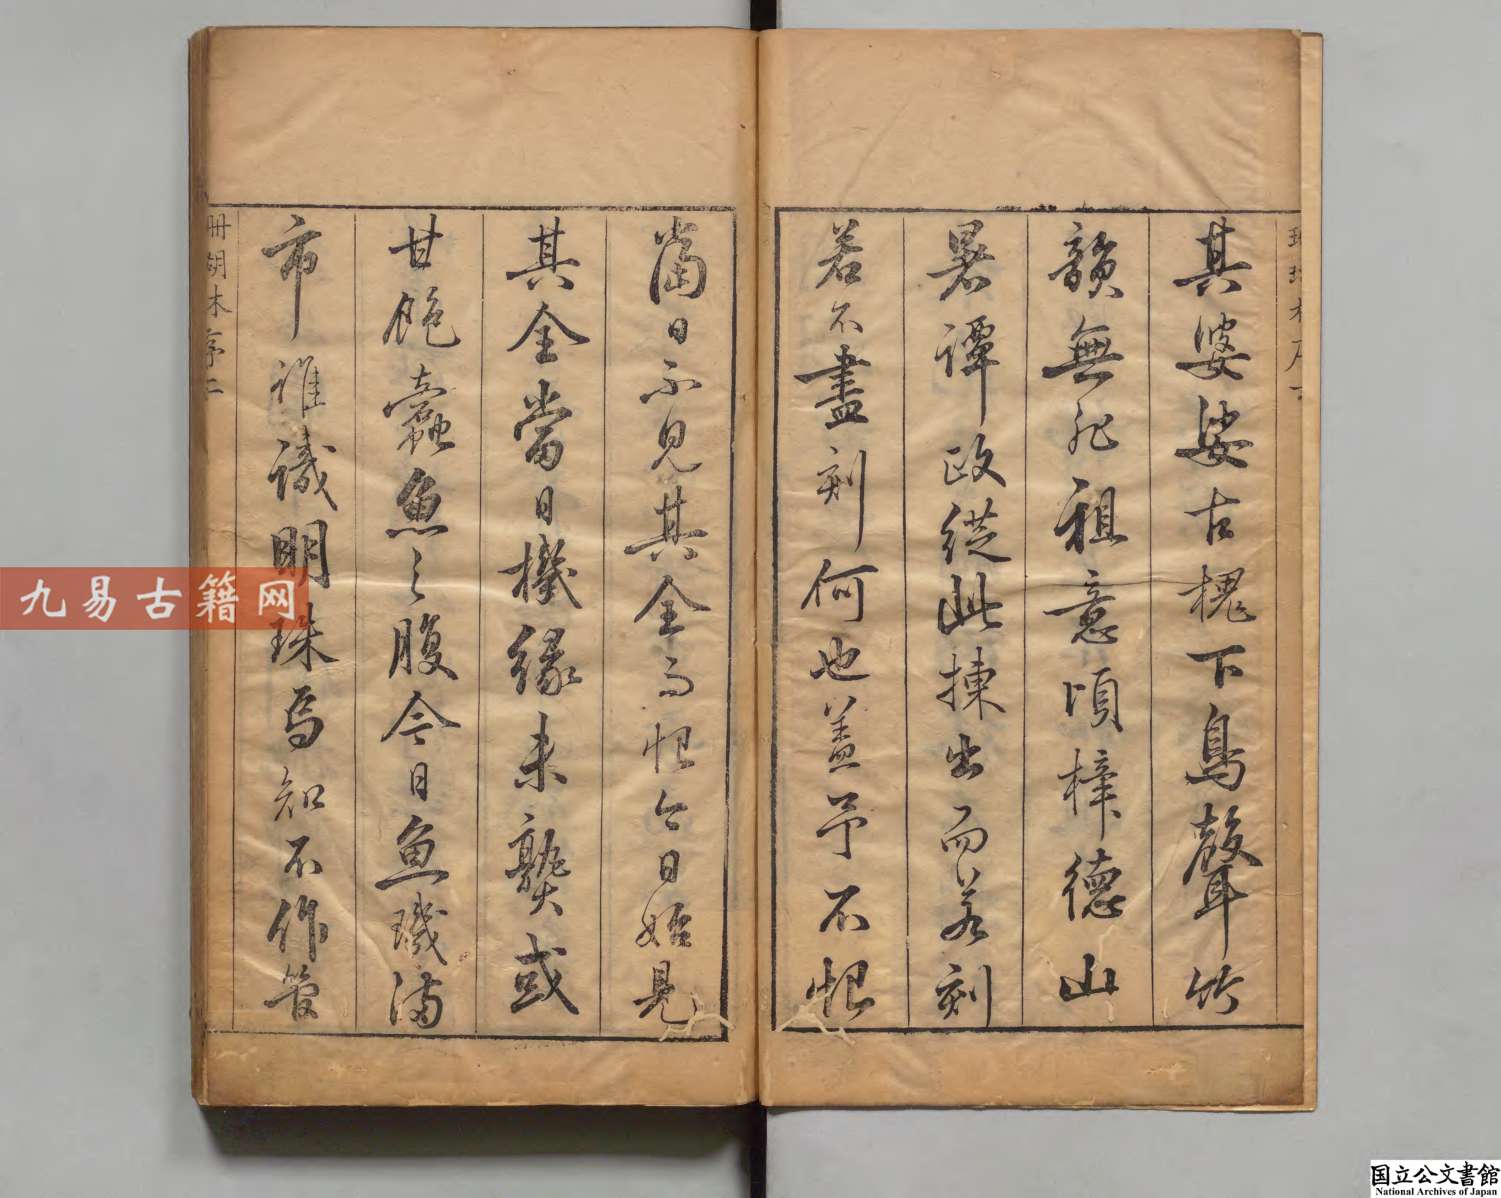 其婆娑古槐下鳥聲竹
韻無非祖意頃梓德山
暑譚政從此揀出而若刻
若不盡刻何也蓋予不恨
當日不見其全而恨今日始見
其全當日機緣未熟或
甘飽蠹魚之腹今日魚璣滿
市誰識明珠焉知不作管
珊瑚林序二
九易古籍网
国立公文書館
National Archives of Japan